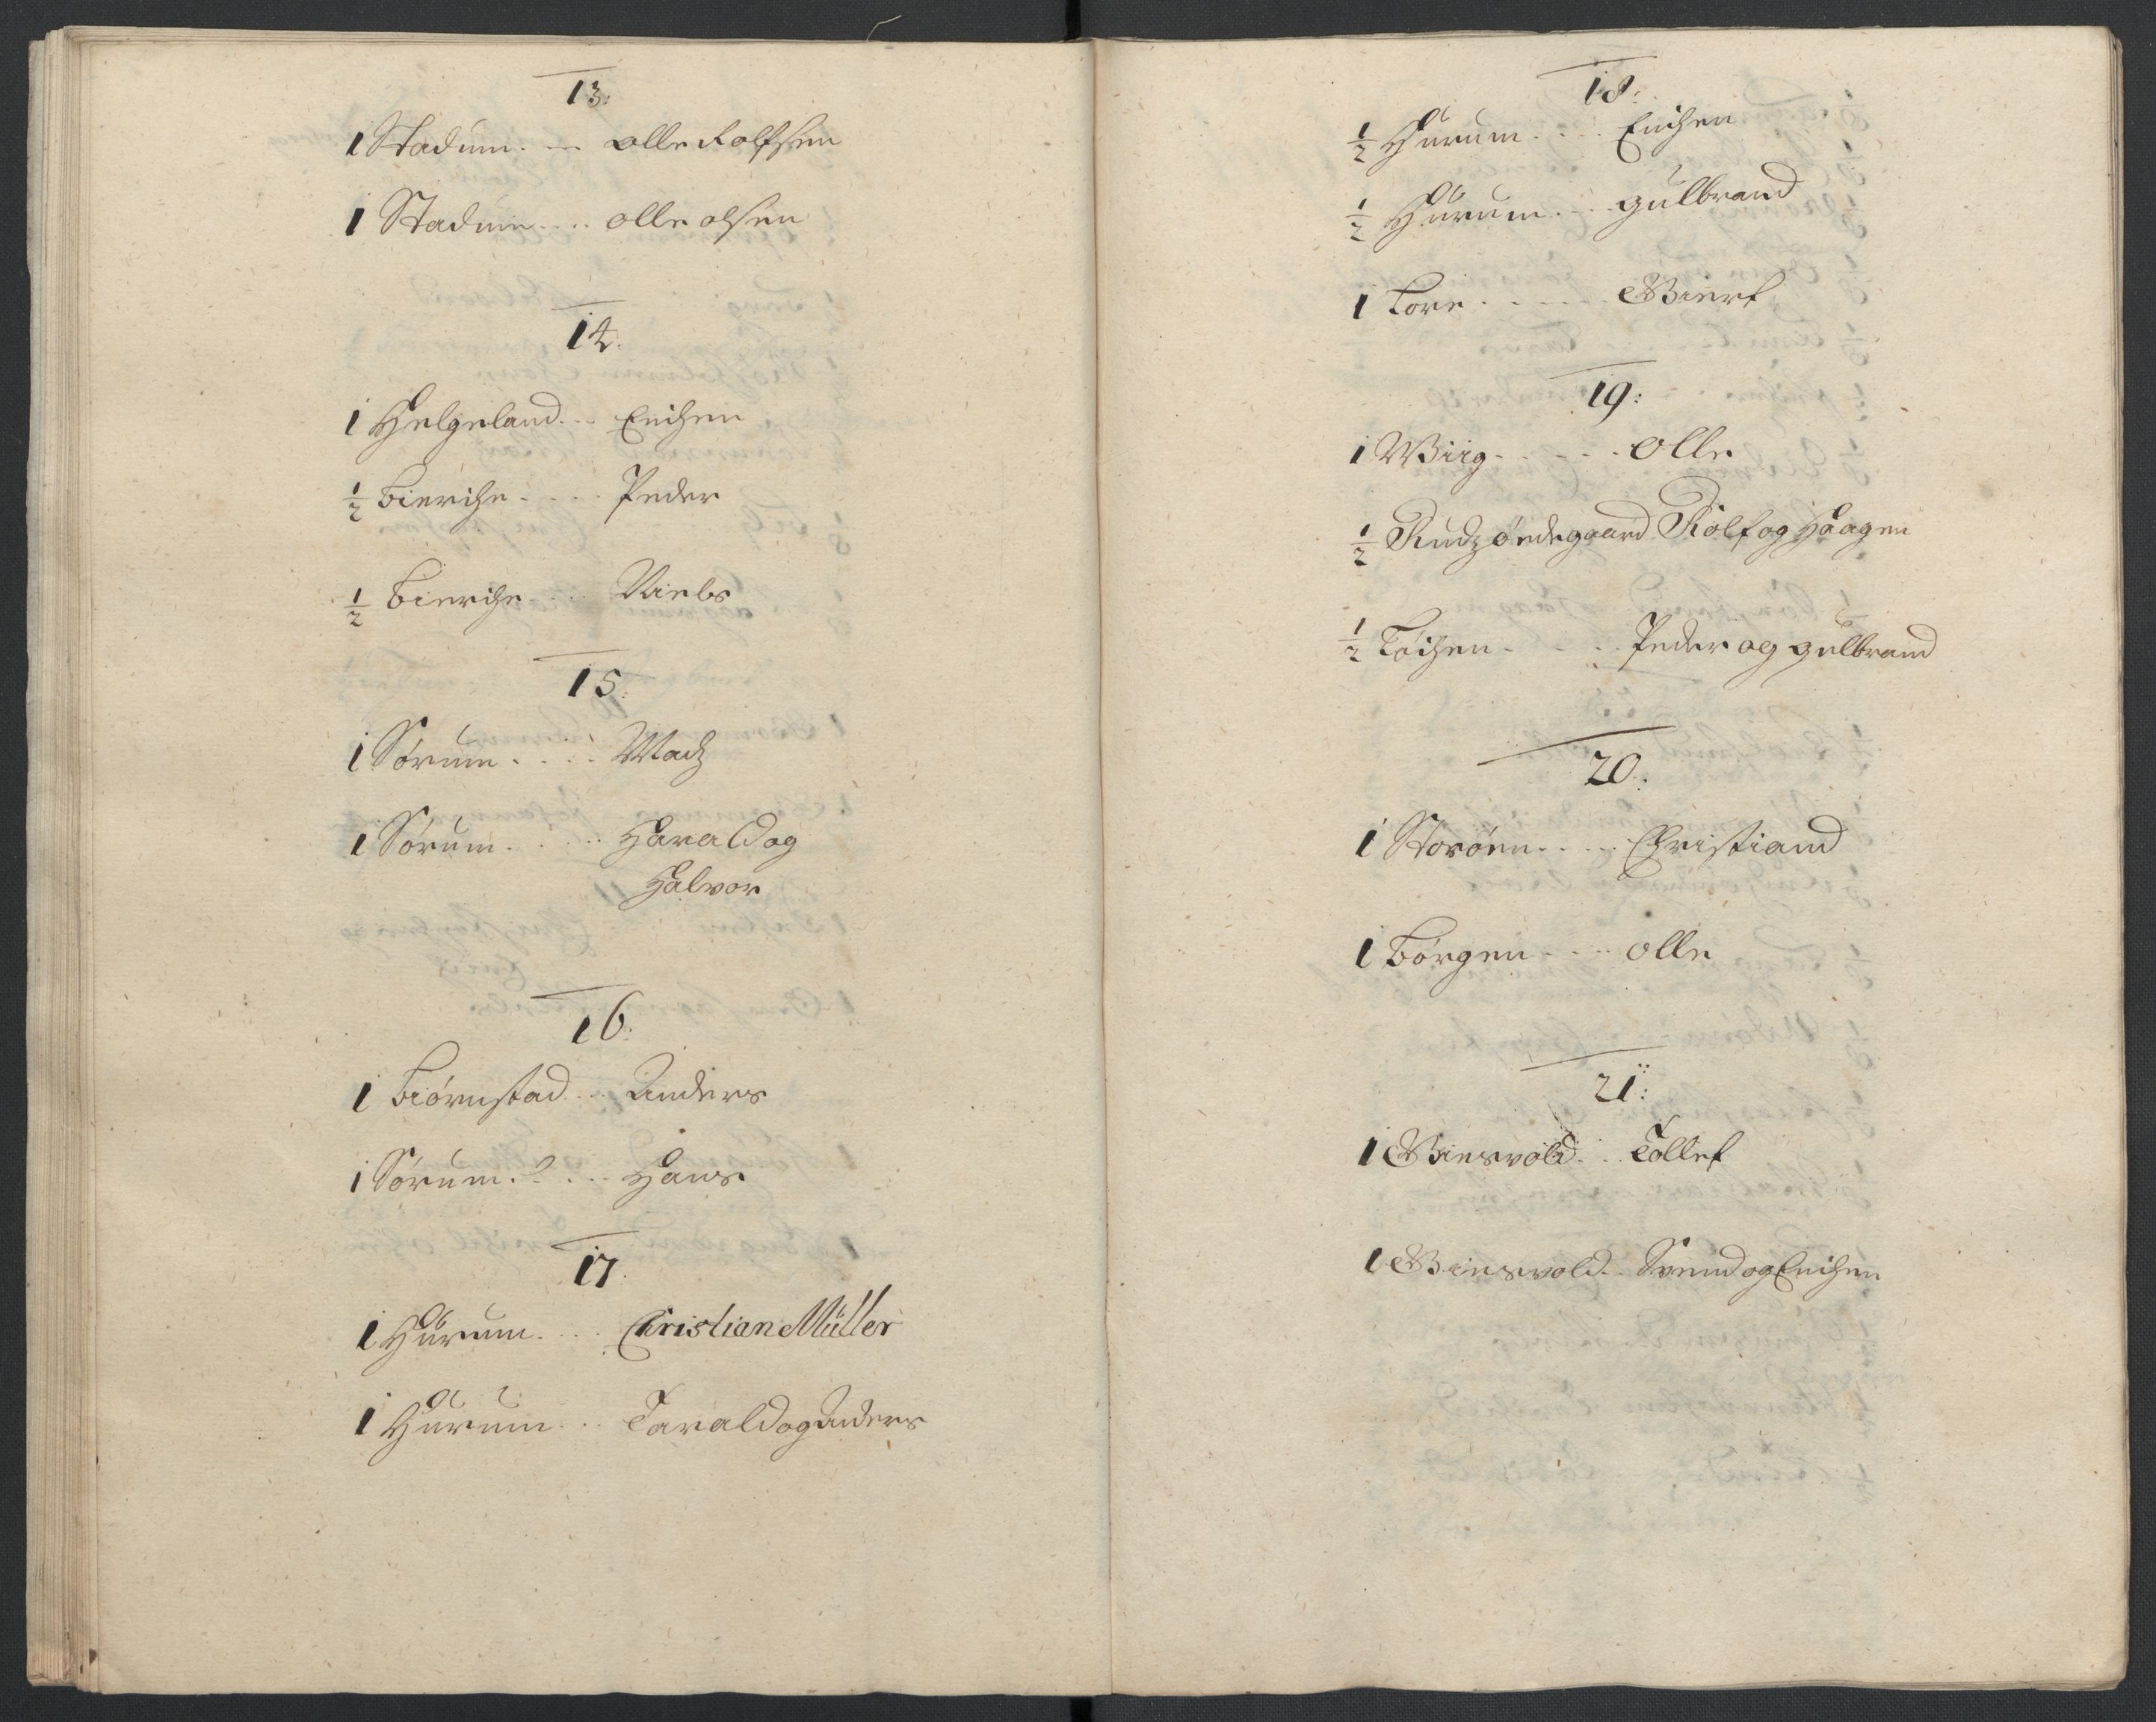 13:
1 Stadum. — Olle Rolfsen
1 Stadum.... Olle olsen
14.
1 Helgeland... Erichen
1/2 Bierche.... Peder
1/2 Bierche.... Niels
15.
1 Sørum.... Madz
1 Sørum..... Harald og
Halvor
16:
1 Biørnstad... Anders
1 Sørum.... Hans
17.
1 Hurum.... Christian Müller
1 Hurum... Tarald og Anders
18:
1/2 Hurum.... Erichen
1/2 Hurum.... gulbrand
1 Tore.....
19:
1 Wiig..... Olle
1/2 Rudzødegaard Rolf og Haagen
1/2 Løchen.... Peder og gulbrand
20:
1 Storøen..... Christiand
1 Børgen.... Olle
21:
1 Giesvold... Tollef
1 Giesvold.. Svend og Erichen